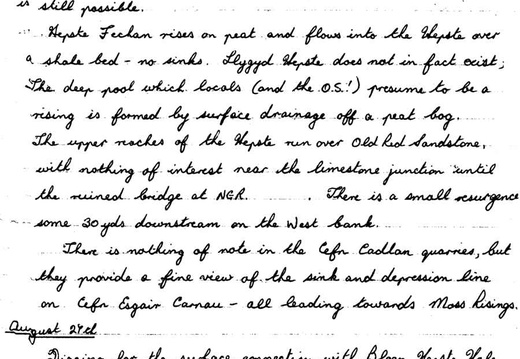 is still possible.
Hepste Fechan rises on peat and flows into the Hepste over
a shale bed - no sinks. Llygyd Hepste does not in fact exist;
The deep pool which locals (and the O.S.!) presume to be a
rising is formed by surface drainage off a peat bog.
The upper reaches of the Hepste run over Old Red Sandstone,
with nothing of interest near the limestone junction until
the ruined bridge at NGR. . There is a small resurgence
some 30 yds downstream on the West bank.
There is nothing of note in the Cefn Cadlan quarries, but
they provide a fine view of the sink and depression line
on Cefn Esgair Carnau - all leading towards Moss Risings.
August 29th
Digging for the surface connection with Blaen Hepste Hole